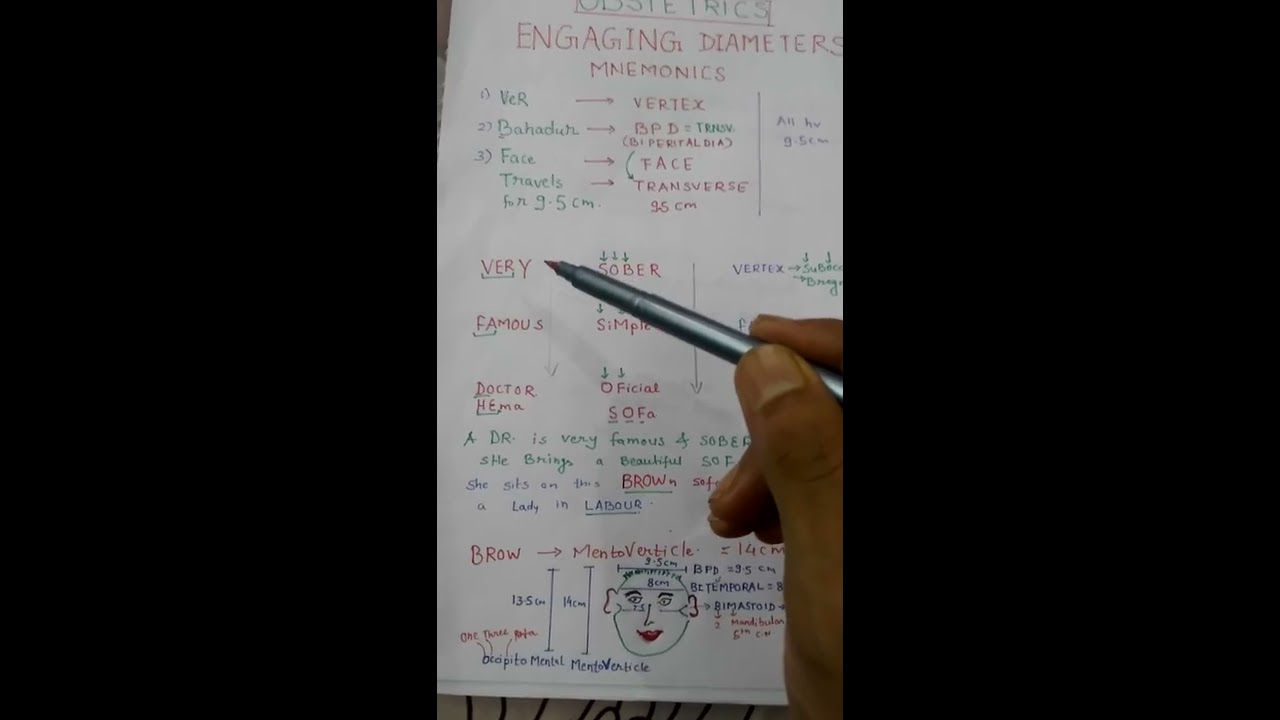 OBSTETRICS
ENGAGING DIAMETERS
MNEMONICS
1) VeR → VERTEX
2) Bahadur → BPD = TRNSV.
(BIPERITAL DIA)
3) Face → FACE
Travels → TRANSVERSE
for 9.5 cm. 95 cm
All hv
9.5cm
VERY SOBER
VERTEX → SuBocc
→ Breg
FAMOUS SiMple
DOCTOR OFicial
HEma SOFa
A DR. is very famous & SOBER
sHe Brings a Beautiful SOF
She sits on this BROWn sof
a Lady in LABOUR.
BROW → MentoVerticle. = 14cm
9.5cm BPD = 9.5 cm
8cm BITEMPORAL = 8
13.5cm 14cm 7.5 → BIMASTOID →
2 Mandibular
5th CN
One Three
Occipito Mental MentoVerticle